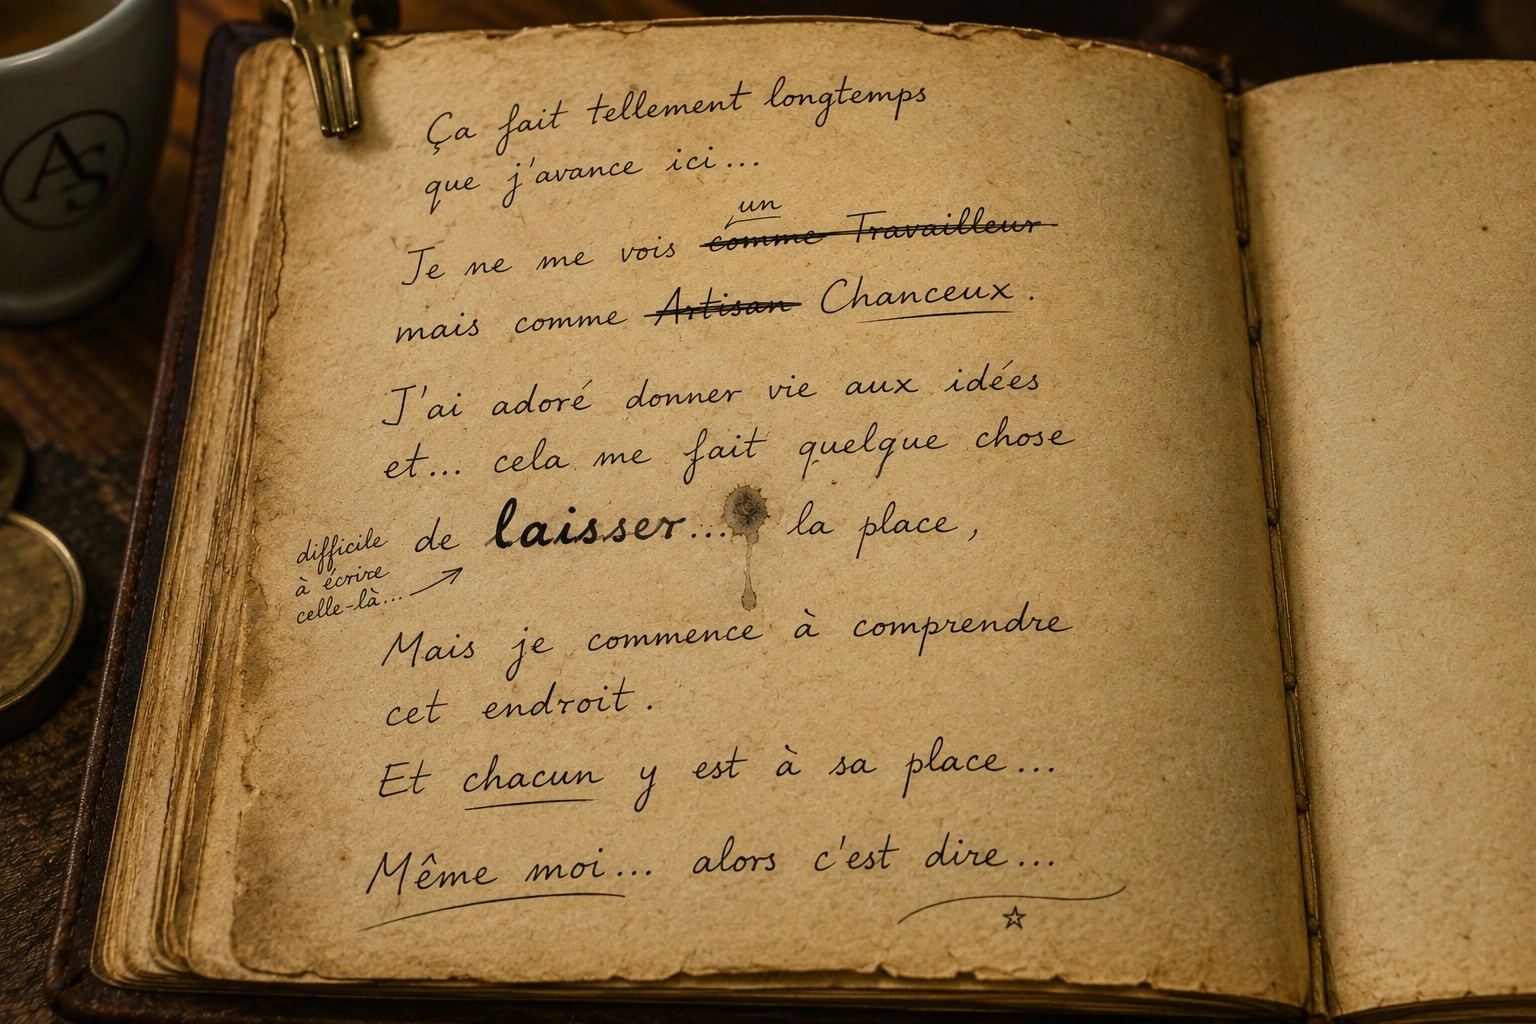 AS
Ça fait tellement longtemps
que j'avance ici...
un
Je ne me vois comme Travailleur
mais comme Artisan Chanceux.
J'ai adoré donner vie aux idées
et... cela me fait quelque chose
de laisser... la place,
difficile
à écrire
celle-là...
Mais je commence à comprendre
cet endroit.
Et chacun y est à sa place...
Même moi... alors c'est dire...